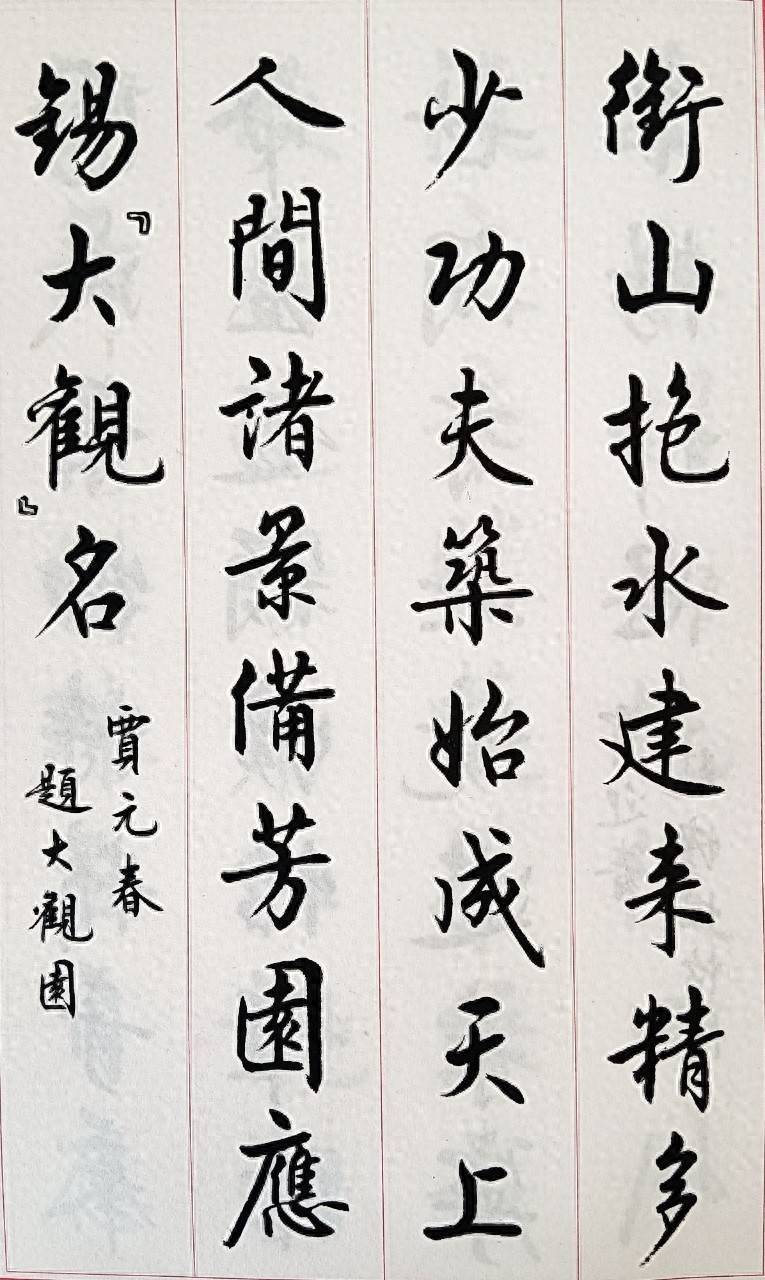 銜山抱水建来精多
少功夫築始成天上
人間諸景備芳園應
錫『大觀』名
賈元春
題大觀園